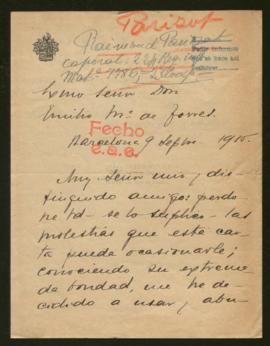 Parisot
Raimond Parizot
caporal 22
Exmo Señor Don
Emilio Mª de Torres.
Fecho
e.a.e.
Barcelona 9 Sepbre 1915.
Muy Señor mio y dis-
tinguido amigo: perdo-
ne Vd - se lo suplico - las
molestias que esta car-
ta puede ocasionarle;
conociendo su extrema
da bondad, me he de-
cidido a usar, y abu-